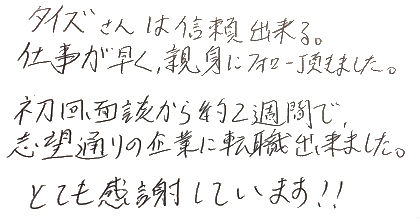 タイズさんは信頼出来る。
仕事が早く、親身にフォロー頂きました。
初回面談から約2週間で、
志望通りの企業に転職出来ました。
とても感謝しています!!